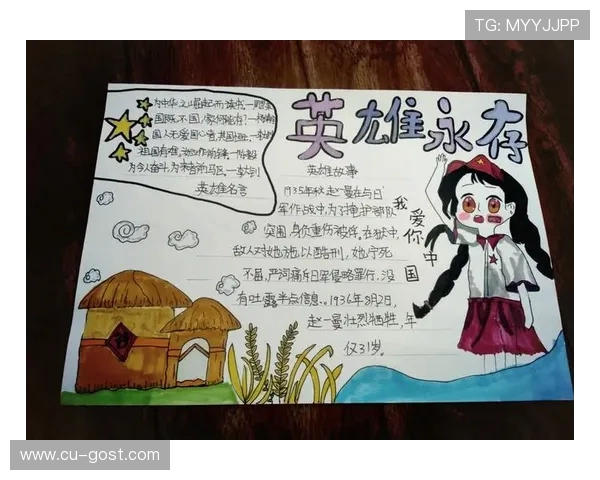 TG: MYYJJPP
英雄永存
为中华之崛起而读书
国既不国,家何能有?
国人无爱国心者,其国
祖国有难,
为今人奋斗,为来者
英雄名言
英雄故事
1935年秋,赵一曼在与日
军作战中,为了掩护部队
突围,身负重伤被俘。在狱中,
敌人对她施以酷刑,她宁死
不屈,严词痛斥日军侵略罪行,没
有吐露半点信息。1936年8月2日,
赵一曼壮烈牺牲,年
仅31岁。
我爱你中国
www.cu-gost.com